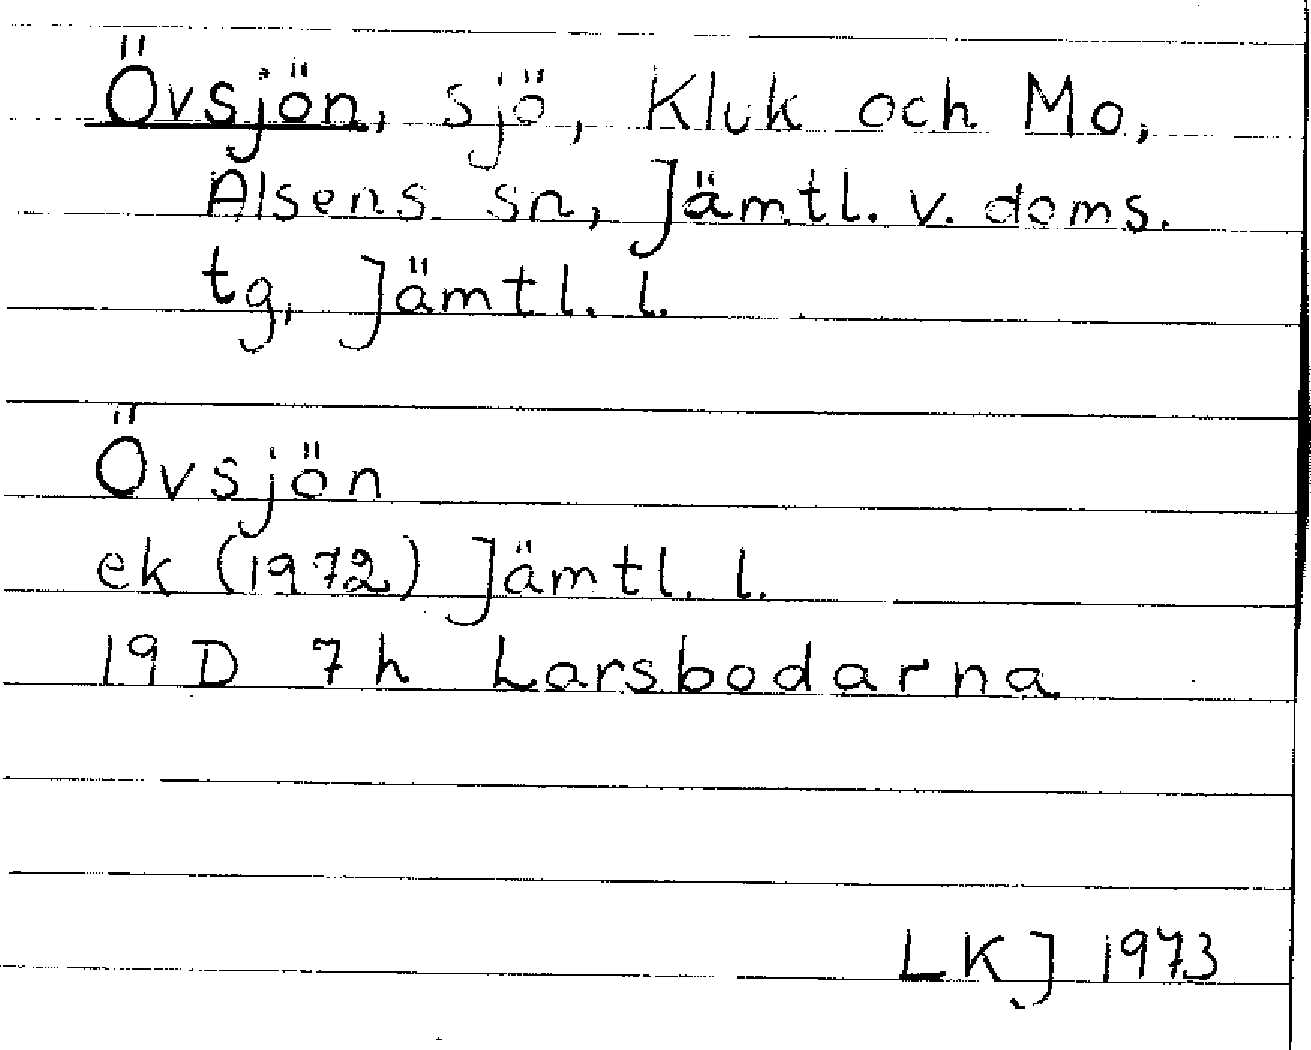 Övsjön, sjö, Kluk och Mo,
Alsens sn, Jämtl. v. doms.
tg, Jämtl. l.
Övsjön
ek (1972) Jämtl. l.
19 D 7h Larsbodarna
LKJ 1973